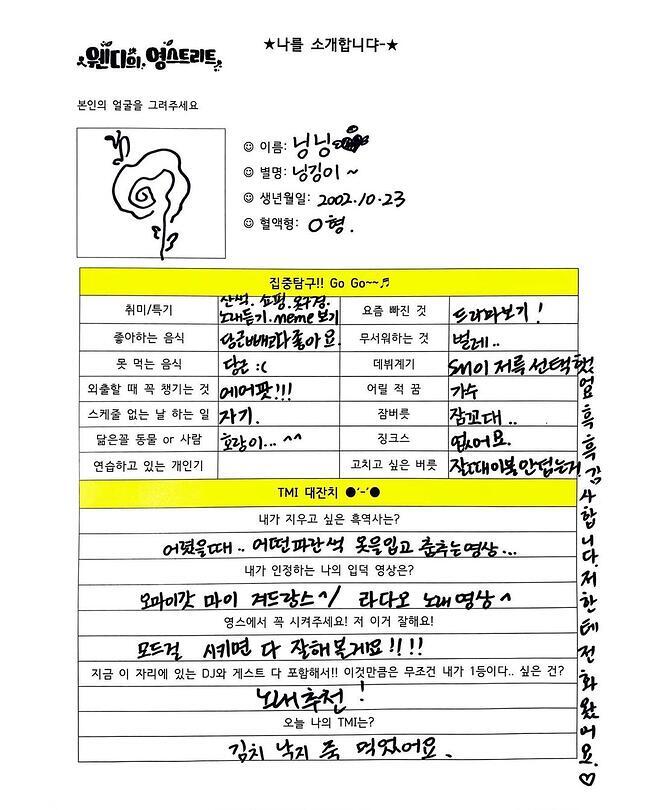 ★나를 소개합니댜-★
웬디의 영스트리트
본인의 얼굴을 그려주세요
☺ 이름: 닝닝
☺ 별명: 닝깅이 ~
☺ 생년월일: 2002.10.23
☺ 혈액형: O형.
집중탐구!! Go Go~~♬
취미/특기 산책. 쇼핑. 옷구경. 노래듣기. meme 보기
요즘 빠진 것 드라마보기!
좋아하는 음식 당근빼고다좋아요.
무서워하는 것 벌레..
못 먹는 음식 당근 :(
데뷔계기 SM이 저를 선택했엄 흑 흑 감사합니다. 저한테 전화왔어요. ♡
외출할 때 꼭 챙기는 것 에어팟!!!
어릴 적 꿈 가수
스케줄 없는 날 하는 일 자기.
잠버릇 잠꼬대..
닮은꼴 동물 or 사람 호랑이... ^^
징크스 없어요.
연습하고 있는 개인기
고치고 싶은 버릇 잘때이불안덥는거
TMI 대잔치 ●'-'●
내가 지우고 싶은 흑역사는?
어렸을때.. 어떤파란색 옷을입고 춤추는영상...
내가 인정하는 나의 입덕 영상은?
오마이갓 마이 겨드랑스^/ 라디오 노래영상^
영스에서 꼭 시켜주세요! 저 이거 잘해요!
모든걸 시키면 다 잘해볼게요!!!!
지금 이 자리에 있는 DJ와 게스트 다 포함해서!! 이것만큼은 무조건 내가 1등이다.. 싶은 건?
노래추천!
오늘 나의 TMI는?
김치 낙지 죽 먹었어요.